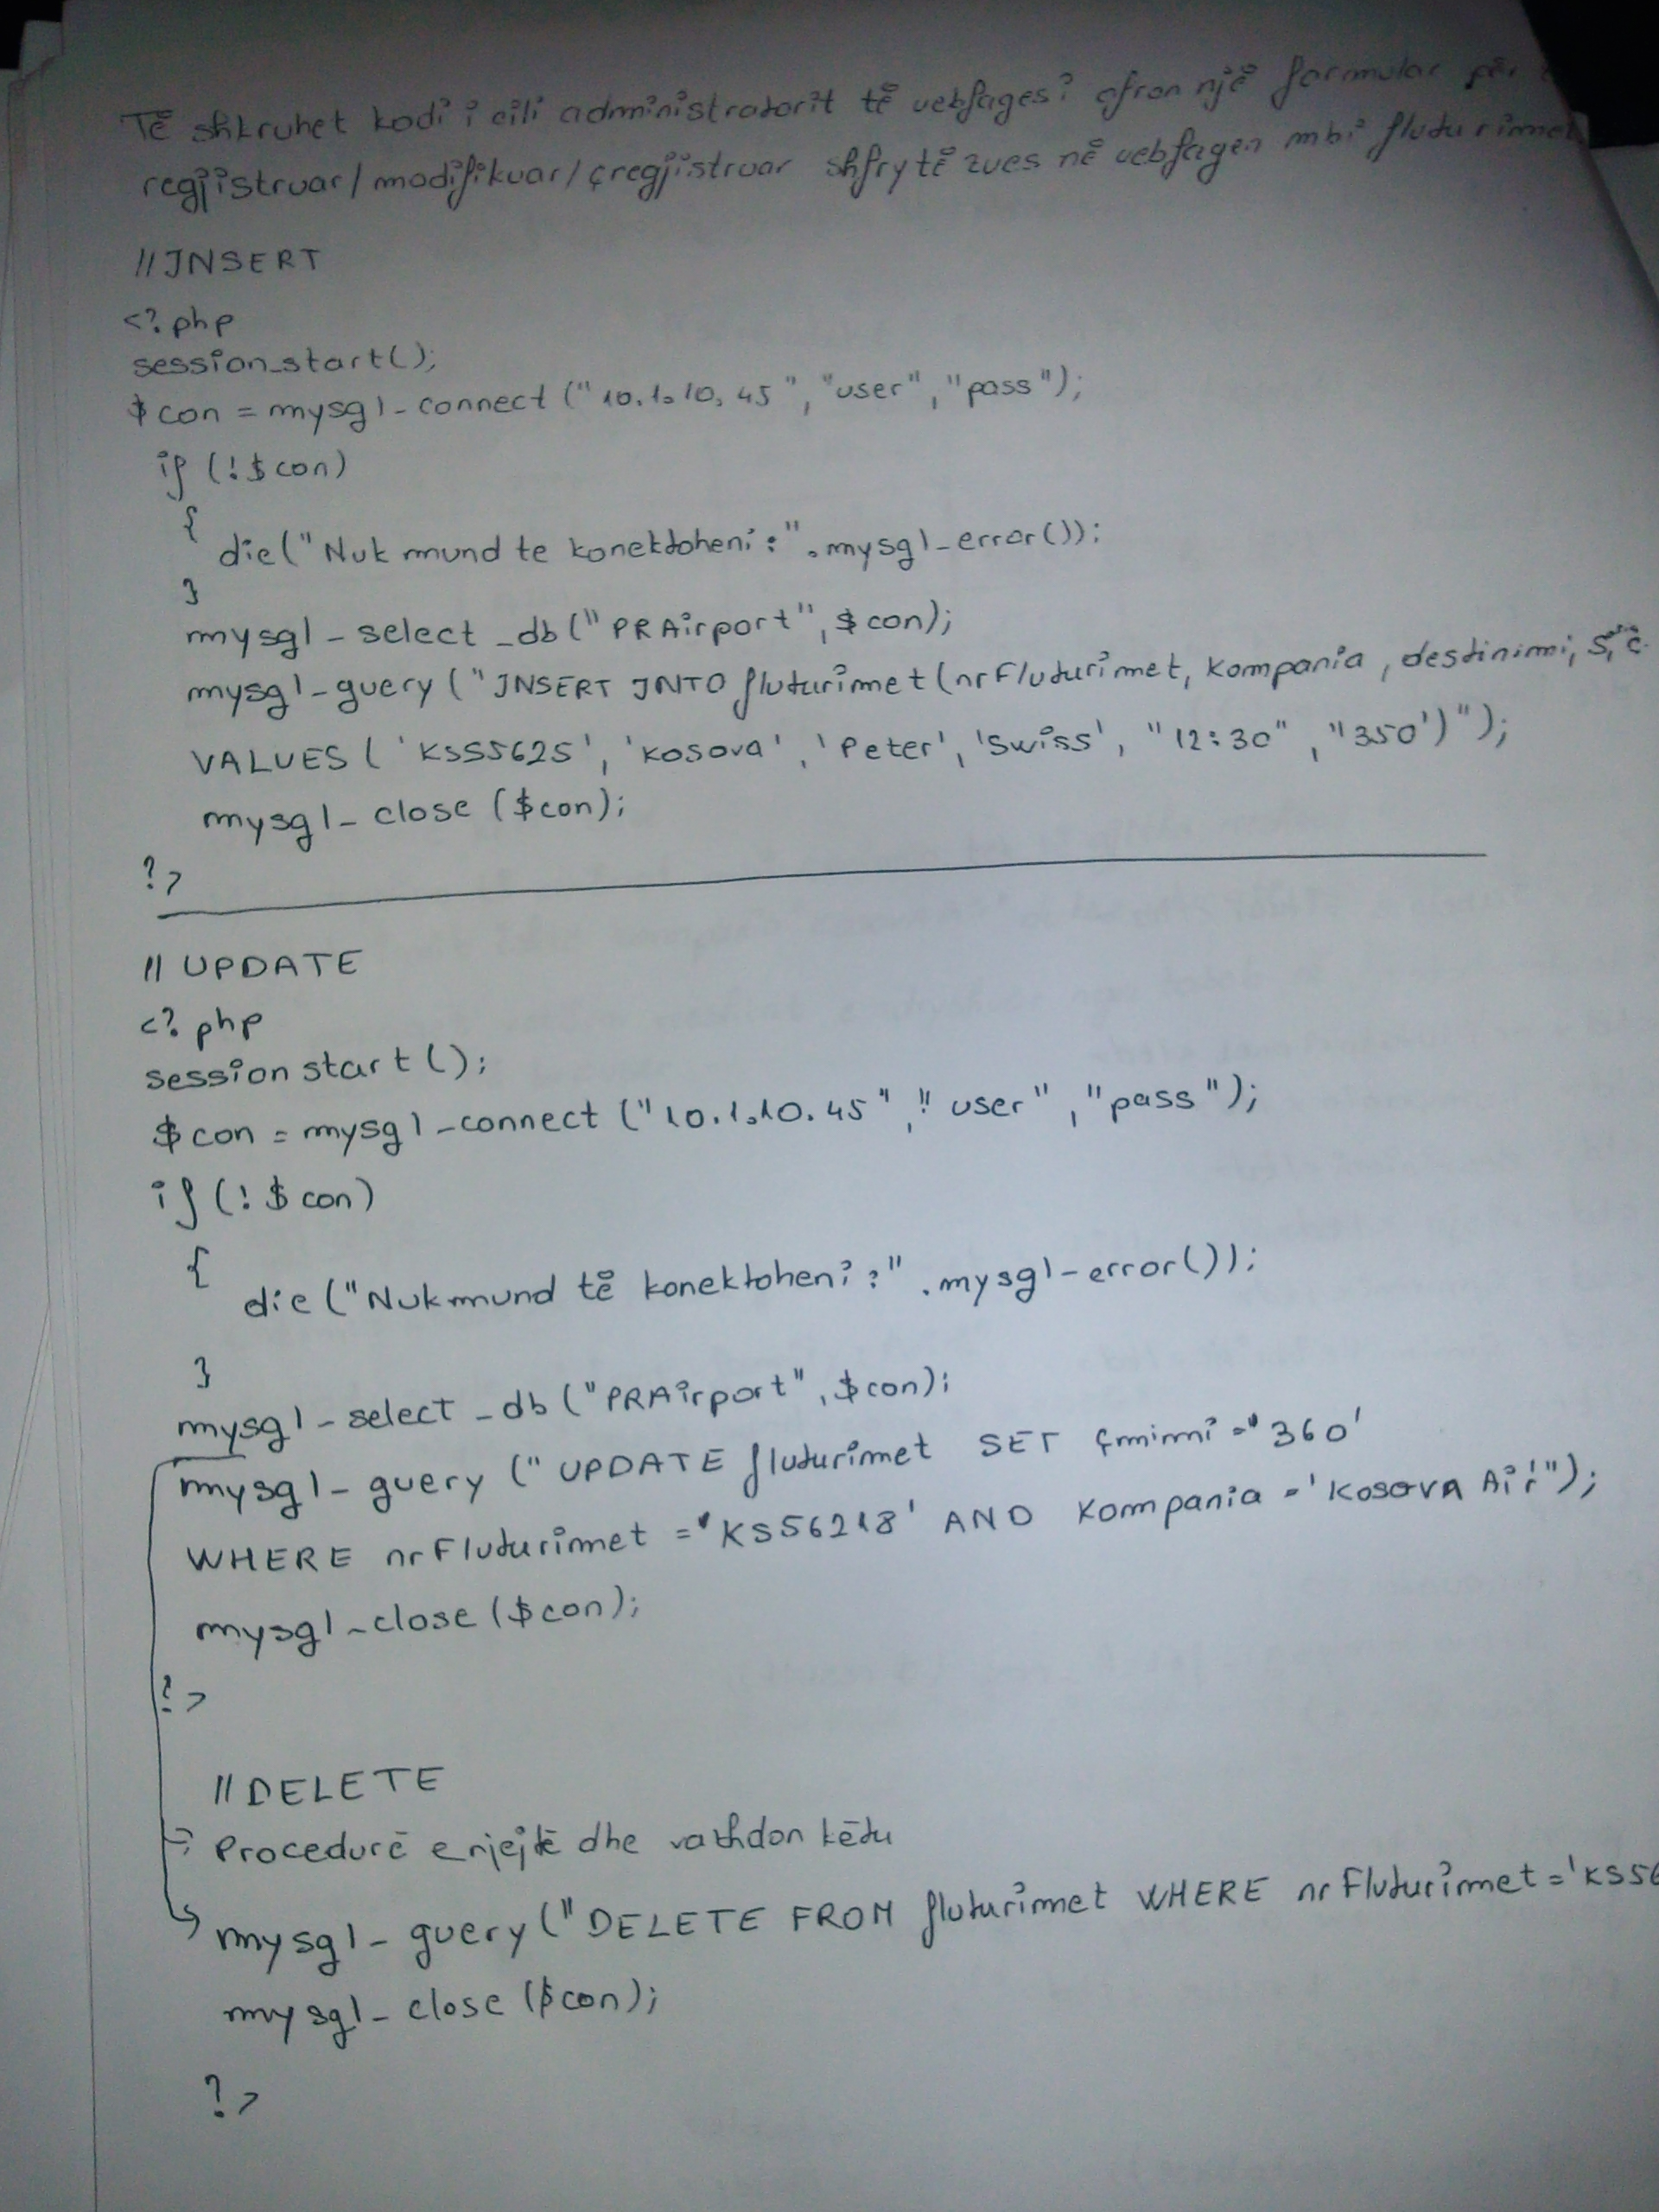 Të shkruhet kodi i cili administratorit të uebfaqes i ofron një formular për
regjistruar/modifikuar/çregjistruar shfrytëzues në uebfaqen mbi fluturimet
//INSERT
<?php
session_start();
$con = mysql-connect ("10.1.10.45", "user", "pass");
if (!$con)
{
die("Nuk mund te konektoheni:".mysql-error());
}
mysql-select_db("PRAirport", $con);
mysql-query ("INSERT INTO fluturimet(nrFluturimet, Kompania, destinimi,
VALUES ('KS55625', 'Kosova', 'Peter', 'Swiss', "12:30", "350')");
mysql-close ($con);
?>
// UPDATE
<?php
session start();
$con = mysql-connect ("10.1.10.45", "user", "pass");
if(!$con)
{
die ("Nuk mund të konektoheni:".mysql-error());
}
mysql-select_db ("PRAirport", $con);
mysql-query ("UPDATE fluturimet SET çmimi='360'
WHERE nrFluturimet ='KS56218' AND Kompania='Kosova Air'");
mysql-close ($con);
?>
//DELETE
Procedurë e njejtë dhe vazhdon këtu
mysql-query ("DELETE FROM fluturimet WHERE nrFluturimet='KS56
mysql-close ($con);
?>